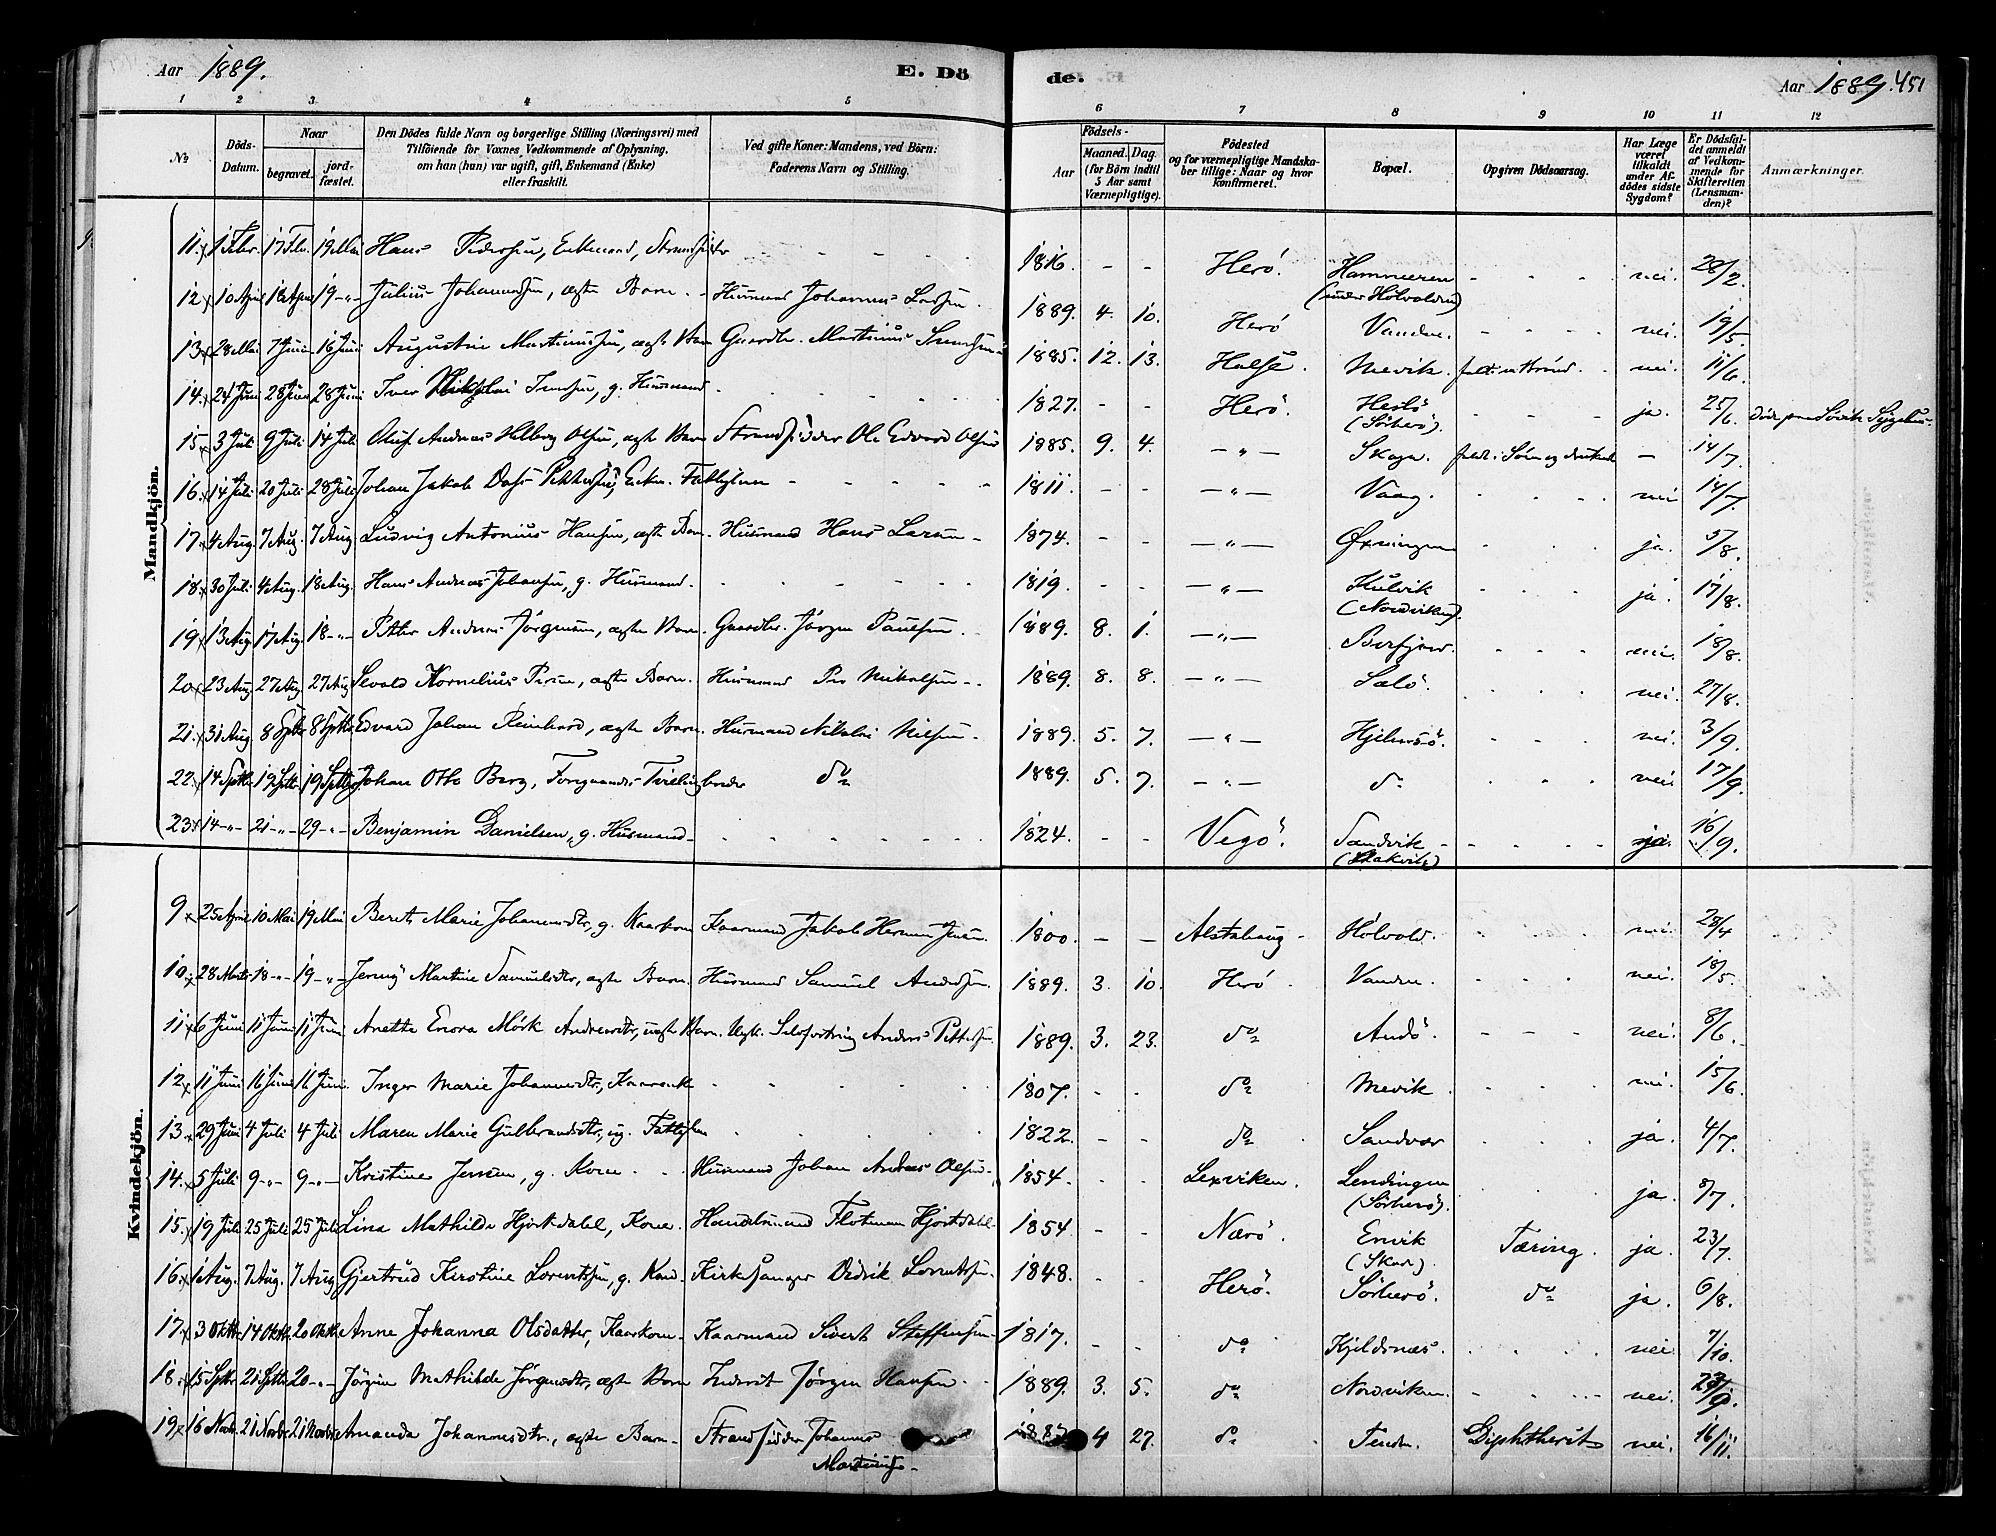 Aar 1889. E. Dö de. Aar 1889. 451
1 2 3. 4 5 6 7 8 9 10 11 12
No
Döds-Datum.
Naar
begravet.
jord-fæstet.
Den Dödes fulde Navn og borgerlige Stilling (Næringsvei) med
Tilföiende for Voxnes Vedkommende af Oplysning,
om han (hun) var ugift, gift, Enkemand (Enke)
eller fraskilt.
Ved gifte Koner: Mandens, ved Börn:
Faderens Navn og Stilling.
Födsels-
Aar
Maaned. Dag.
(for Börn indtil
5 Aar samt
Værnepligtige).
Födested
og for værnepligtige Mandska-
ber tillige: Naar og hvor
konfirmeret.
Bopæl.
Opgiven Dödsaarsag.
Har Læge
været
tilkaldt
under Af-
dödes sidste
Sygdom?
Er Dödsfal-
det anmeldt
af Vedkom-
mende for
Skifteretten
(Lensman-
den)?
Anmærkninger.
Mandkjön.
11. 1 Febr. 17 Febr. 19 Mai Hans Pedersen, Enkemand, Strandsidder 1816. - - Herö. Hammeren (under Hölvolden) nei. 28/2.
12 10 April 16 April 19 -"- Julius Johannessen, ægte Barn Husmand Johannes Larsen. 1889. 4. 10. Herö Vandve. nei. 19/5.
13 28 Mai 7 Juni 16 Juni Augustin Martinussen, ægte Barn Gaardbr. Martinus 1885. 12. 13. Halsø. Mevik. nei. 11/6.
14. 24 Juni 28 Juni 28 Juni Iver Nikolai Jensen, g. Husmand 1827. - - Herö. (Sörherö). ja. 25/6. Döde paa Sygehus
15 3 Juli 9 Juli 14 Juli Oluf Andreas Olsen, ægte Barn Strandsidder Ole Edvard Olsen 1885. 9. 4. -"- Skaga. faldt i Söen og druknede - 14/7.
16. 14 Juli 20 Juli 28 Juli Johan Jakob Dass Pettersen, Enkm. Fattiglem 1811. - - -"- Vaag. nei 14/7.
17. 4 Aug. 7 Aug. 7 Aug. Ludvig Antonius Hansen, ægte Barn. Husmand Hans Larsen 1874. - - -"- Øxningen ja. 5/8.
18. 30 Juli 4 Aug. 18 Aug. Hans Andreas Johansen, g. Husmand. 1819. - - -"- Kulvik (Nordviken). ja. 17/8.
19 13 Aug. 17 Aug. 18 -"- Petter Andreas Jörgensen, ægte Barn. Gaardbr. Jörgen Paulsen 1889. 8. 1. -"- nei. 18/8.
20 23 Aug. 27 Aug. 27 Aug. Sevald Kornelius Persen, ægte Barn. Husmand Per Nikolsen 1889. 8. 8. -"- Salö. nei. 27/8.
21. 31 Aug. 8 Septbr 8 Septbr Edvard Johan Reinhard, ægte Barn. Husmand Nikolai Nielsen 1889. 5. 7. -"- Hjelmsö. nei. 3/9.
22. 14 Septbr 19 Septbr 19 Septbr Johan Otto Berg, Foregaaendes Tvillingbroder do 1889. 5. 7. -"- do nei 17/9.
23 14 -"- 21 -"- 29 -"- Benjamin Danielsen, g. Husmand 1824. - - Vegö. Sandvik ja. 16/9.
Kvindekjön.
9 25 April 10 Mai 19 Mai Beret Marie Johannesdtr, g. Kaarkone Kaarmand Jakob Herman Jensen. 1800. - - Alstahaug Hölvold. nei. 28/4
10. 28 Marts 18 -"- 19 -"- Jenny Martine Samuelsdtr, ægte Barn. Husmand Samuel Andersen. 1889. 3. 10. Herö. Vandve. nei. 18/5.
11 6 Juni 11 Juni 11 Juni Anette Enora Mörk Andreasdtr, uægte Barn. Ugk. Selvforsörg. Anders Pettersen. 1889. 3. 23. do Andö. nei. 8/6.
12 11 Juni 16 Juni 16 Juni. Inger Marie Johannesdtr, Kaarenke 1807. - - do Mevik nei. 15/6
13 29 Juni 4 Juli 4 Juli Maren Marie Gulbrandsdtr, ug. Fattiglem 1822. - - do Sandvær ja. 4/7.
14. 5 Juli 9 -"- 9 -"- Kristine Jensen, g. Kone. Husmand Johan Andreas Olsen 1854. - - Lexviken. Lendingen (Sörherö). ja. 8/7.
15. 19 Juli 25 Juli 25 Juli Lina Mathilde Hjortdahl, Kone. Handelsmand Flotman Hjortdahl 1854 - - Nærö. Envik Tæring. ja. 23/7.
16. 1 Aug. 7 Aug. 7 Aug Gjertrud Kirstine Lorentsen, g. Kone Kirkesanger Didrik Lorentsen 1848. - - Herö. Sörherö. do ja. 6/8.
17. 3 Oktbr. 14 Oktbr. 20 Oktbr Anne Johanna Olsdatter, Kaarkone. Kaarmand Sivert Steffensen 1817. - - do Kjeldsnæs. nei. 7/10.
18. 15 Septbr 21 Septbr 20 -"- Jörgine Mathilde Jörgensdtr, ægte Barn Inderst Jörgen Hansen 1889. 3. 5. do Nordviken. nei.
19. 16 Novbr. 21 Novbr 21 Novbr Amanda Johannesdtr., ægte Barn Strandsidder Johannes Martinus- 1887 4 27. do Diphtherit nei. 16/11.